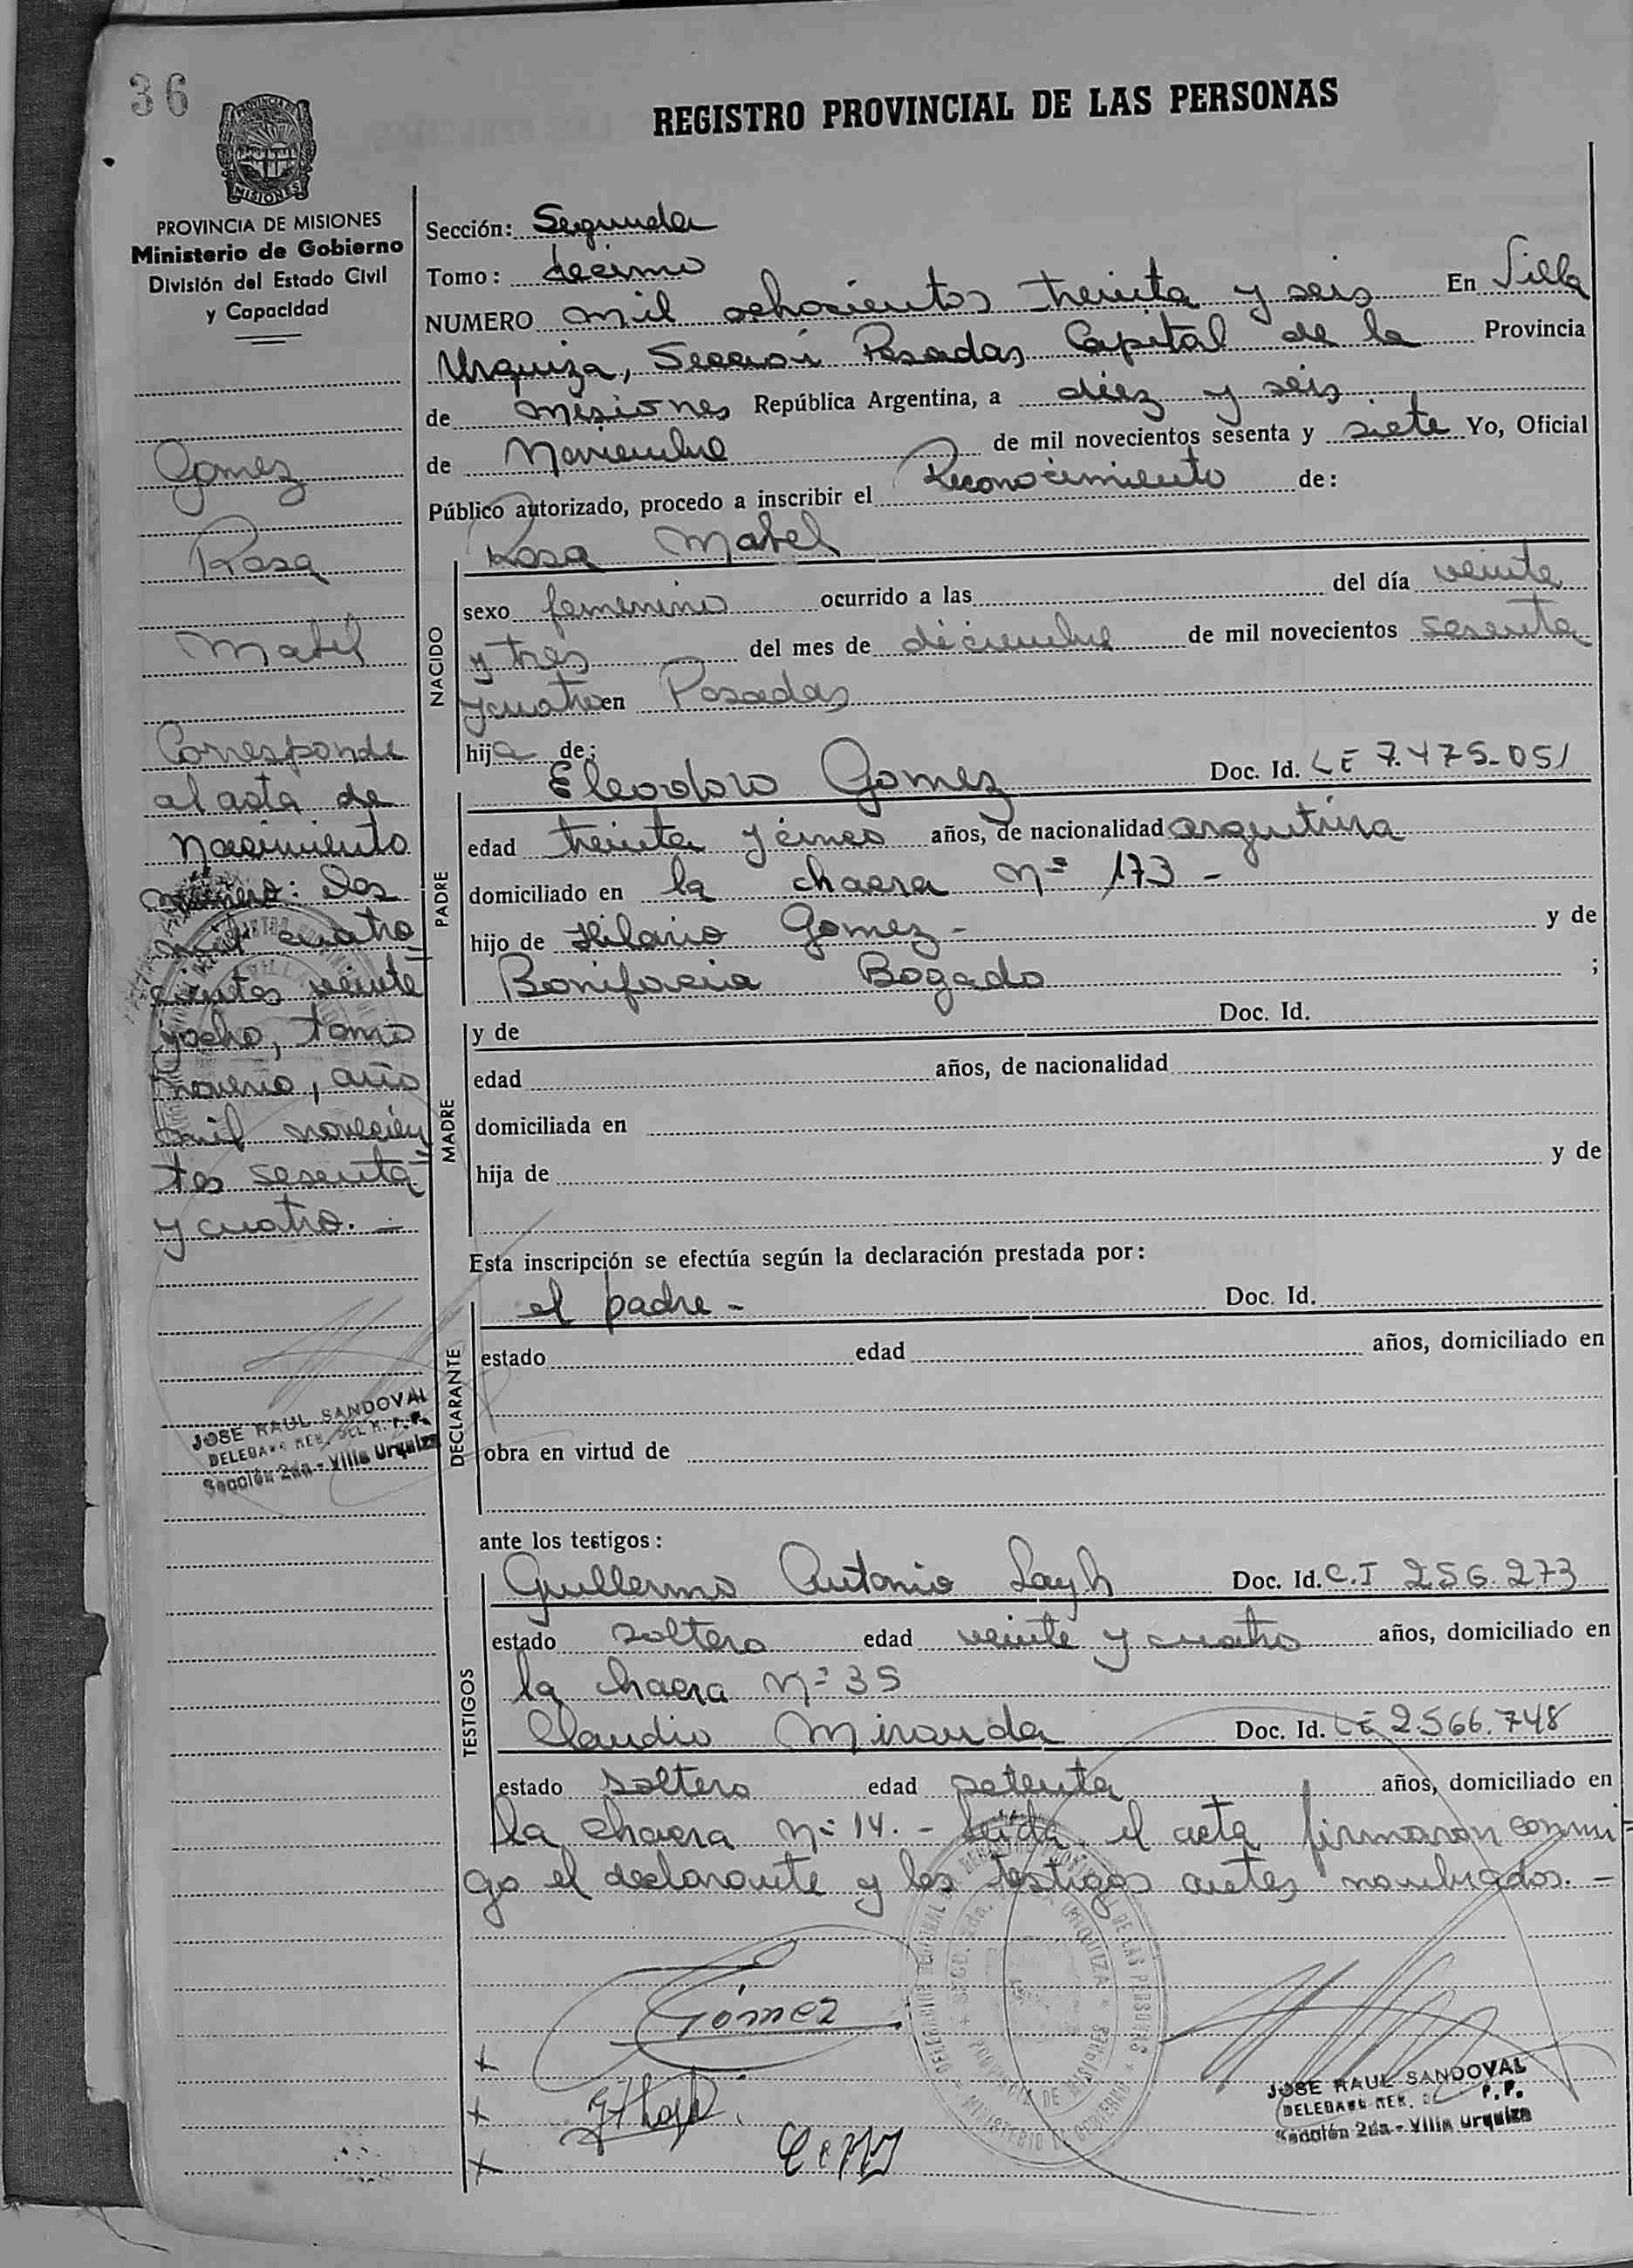 36
REGISTRO PROVINCIAL DE LAS PERSONAS
PROVINCIA DE MISIONES
MISIONES
PROVINCIA DE MISIONES
Ministerio de Gobierno
División del Estado Civil
y Capacidad
Gomez
Rosa
Mabel
Corresponde
al acta de
nacimiento
número: Dos
mil cuatro-
cientos veinte
yocho, tomo
noveno, año
mil novecien
tos sesenta
y cuatro. -
JOSE RAUL SANDOVAL
DELEGADO REG. DEL R. P. P.
Sección 2da - Villa Urquiza
Sección: Segunda
Tomo: décimo
NUMERO mil ochocientos treinta y seis En Villa
Urquiza, Sección Posadas Capital de la Provincia
de Misiones República Argentina, a diez y seis
de Noviembre de mil novecientos sesenta y siete Yo, Oficial
Público autorizado, procedo a inscribir el Reconocimiento de:
NACIDO
Rosa Mabel
sexo femenino ocurrido a las del día veinte
y tres del mes de diciembre de mil novecientos sesenta
ycuatro en Posadas
hija de:
PADRE
Eleodoro Gomez Doc. Id. LE 7.475.051
edad treinta y cinco años, de nacionalidad argentina
domiciliado en la chacra Nº 173 -
hijo de Hilario Gomez - y de
Bonifacia Bogado ;
MADRE
y de Doc. Id.
edad años, de nacionalidad
domiciliada en
hija de y de
Esta inscripción se efectúa según la declaración prestada por:
DECLARANTE
el padre - Doc. Id.
estado edad años, domiciliado en
obra en virtud de
ante los testigos:
TESTIGOS
Guillermo Antonio Doc. Id. C.I 256.273
estado soltero edad veinte y cuatro años, domiciliado en
la chacra Nº 35
Claudio Miranda Doc. Id. LE 2.566.748
estado soltero edad setenta años, domiciliado en
la chacra Nº 14. - Leída el acta firmaron conmi
go el declarante y los testigos antes nombrados. -
Gómez
x
x
x
JOSE RAUL SANDOVAL
DELEGADO REG. P. P.
Sección 2da - Villa Urquiza